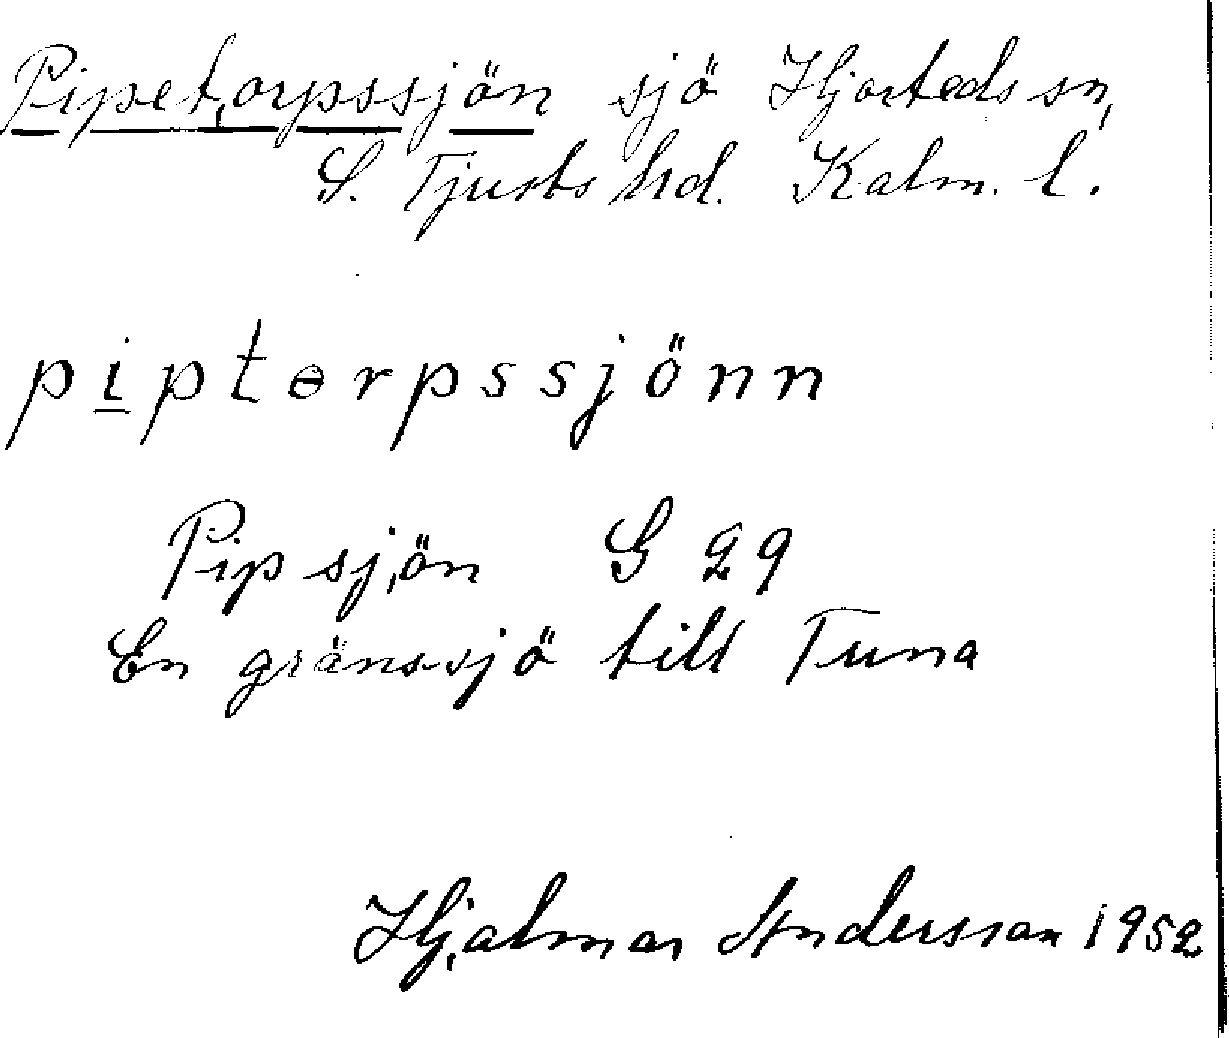 Pipetorpssjön sjö Hjorteds sn,
S. Tjusts hd. Kalm. l.
piptɵrpssjönn
Pipsjön G 29
En gränssjö till Tuna
Hjalmar Andersson 1952